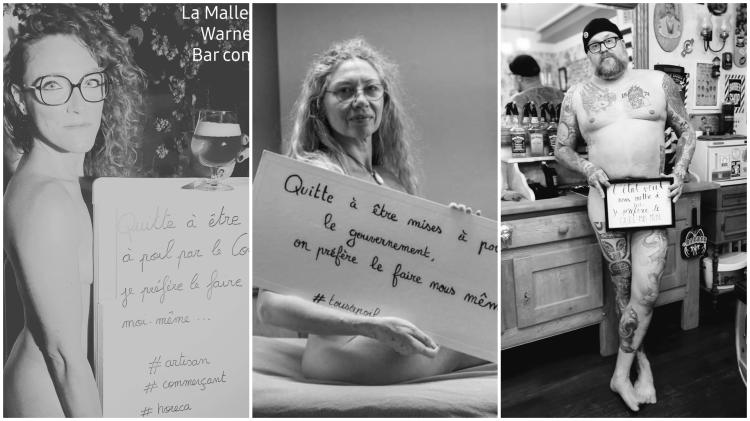 La Malle
Warne
Bar con
Quitte à être
à poil par le Co
je préfère le faire
moi-même ...
# artisan
# commerçant
# horeca
Quitte à être mises à po
le gouvernement,
on préfère le faire nous mêm
# toustapoil
L'état veut
nous mettre à
je préfère le